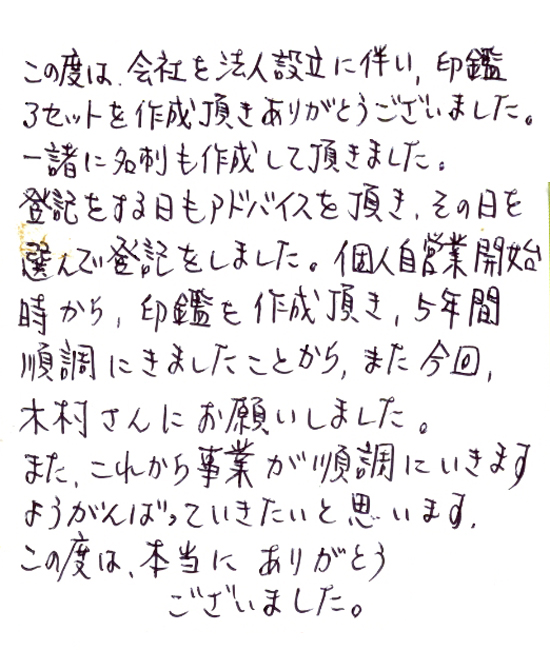 この度は、会社を法人設立に伴い、印鑑
3セットを作成頂きありがとうございました。
一諸に名刺も作成して頂きました。
登記をする日もアドバイスを頂き、その日を
選んで登記をしました。個人自営業開始
時から、印鑑を作成頂き、5年間
順調にきましたことから、また今回、
木村さんにお願いしました。
また、これから事業が順調にいきます
ようがんばっていきたいと思います。
この度は、本当にありがとう
ございました。